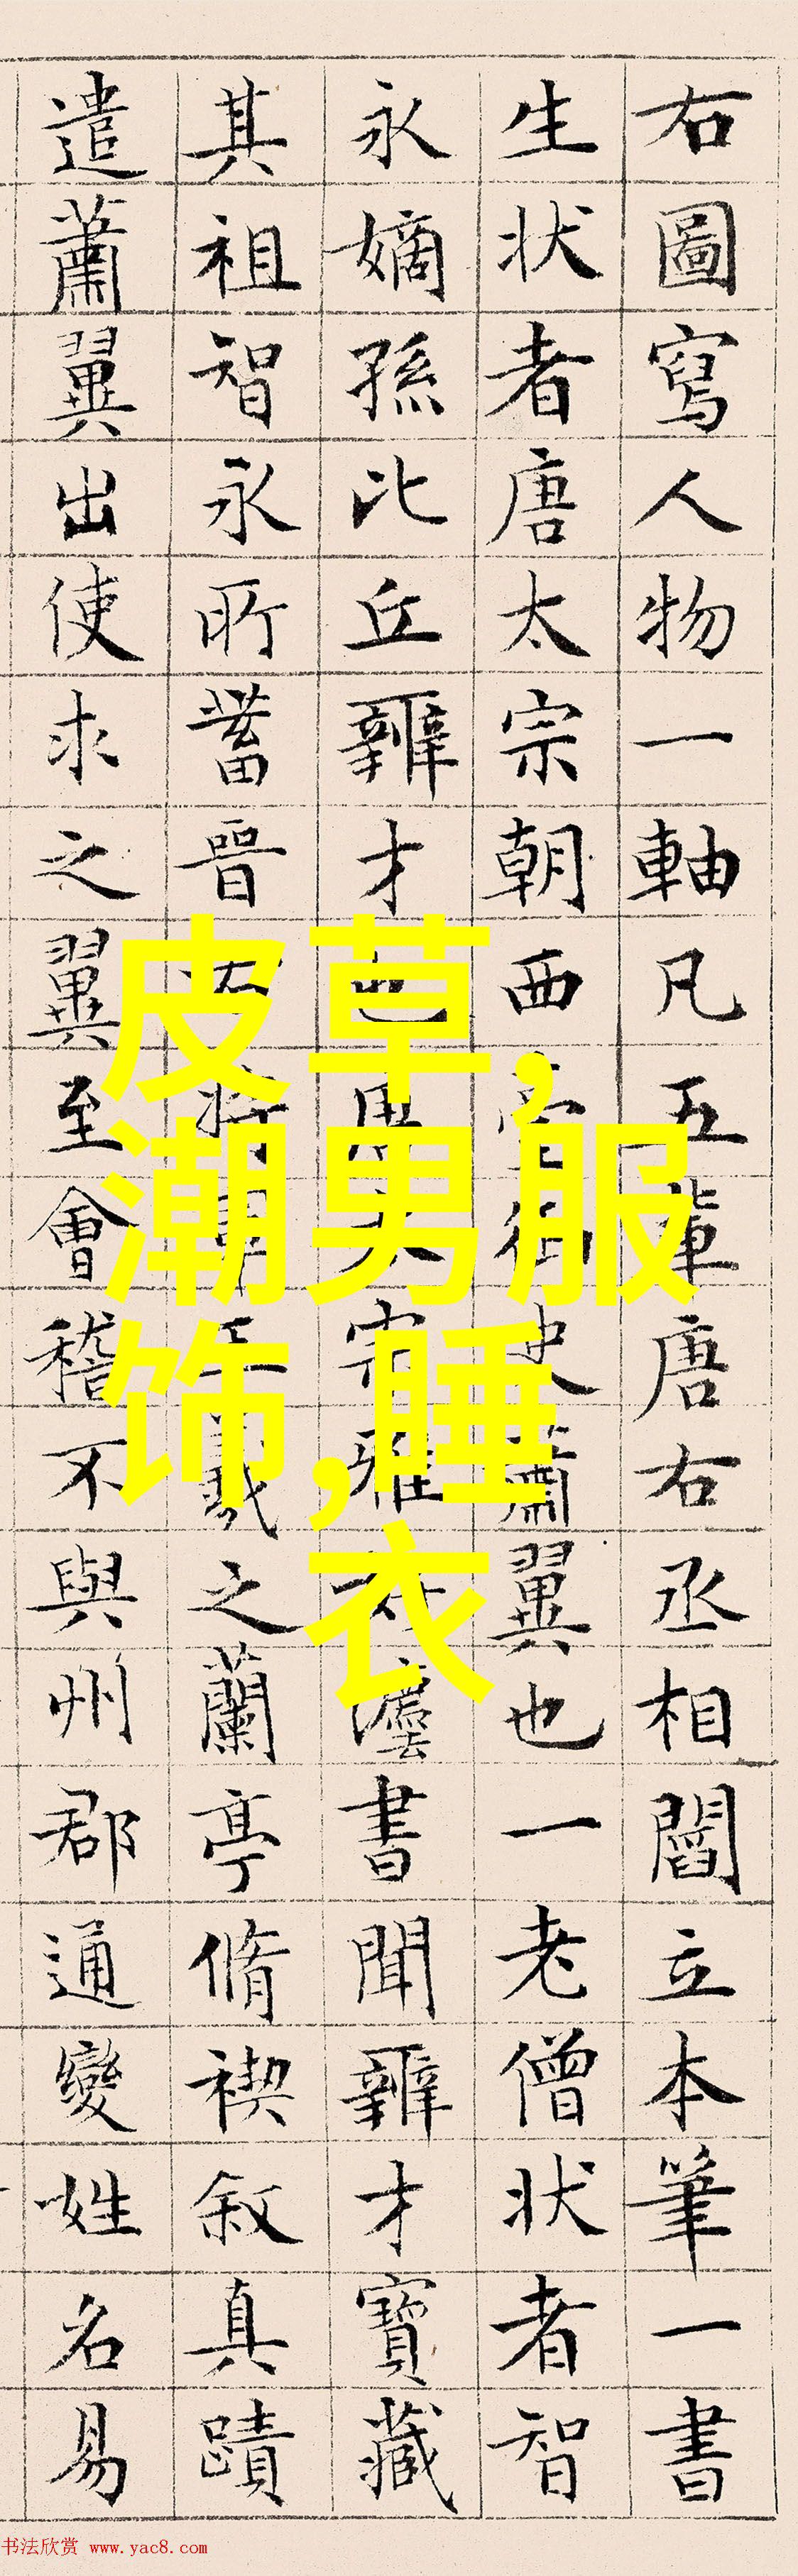 右圖寫人物一軸凡五輩唐右丞相閻立本筆一書
生状者唐太宗朝西臺御史蕭翼也一老僧状者智
永嫡孫比丘辯才也太宗雅好灋書聞辯才寶藏
其祖智永所蓄晉右將軍王羲之蘭亭脩禊敘真蹟
遣蕭翼出使求之翼至會稽不與州郡通變姓名易
皮草,
潮男服
饰,睡
衣
书法欣赏 www.yac8.com